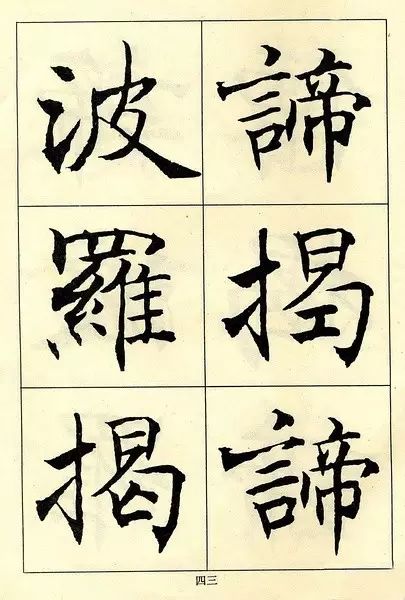 諦揭諦
波羅揭
四三